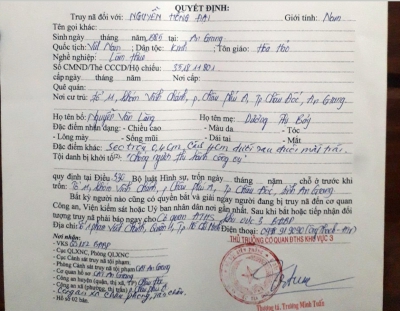 QUYẾT ĐỊNH:
Truy nã đối với: NGUYỄN HỒNG ĐẠI Giới tính: Nam
Tên gọi khác:
Sinh ngày tháng năm 1986 tại An Giang
Quốc tịch: Việt Nam; Dân tộc: Kinh; Tôn giáo: Hòa Hảo
Nghề nghiệp: Làm thuê
Số CMND/Thẻ CCCD/Hộ chiếu: 351811801
cấp ngày tháng năm Nơi cấp:
Quê quán:
Nơi cư trú: Tổ 11, khóm Vĩnh Chánh, p. Châu Phú A, Tp Châu Đốc, An Giang
Họ tên bố: Nguyễn Văn Lãng Họ tên mẹ: Dương Thị Bảy
Đặc điểm nhân dạng: - Chiều cao - Màu da - Tóc
- Lông mày - Sống mũi - Dái tai - Mắt
Đặc điểm khác: Sẹo tròn 0,4cm, cách 4cm dưới sau đuôi mắt trái.
Tội danh bị khởi tố: "Chống người thi hành công vụ"
quy định tại Điều 330 Bộ luật Hình sự, trốn ngày tháng năm , chỗ ở trước khi
trốn: Tổ 11, khóm Vĩnh Chánh, p. Châu Phú A, Tp Châu Đốc, tỉnh An Giang
Bất kỳ người nào cũng có quyền bắt và giải ngay người bị truy nã đến cơ quan
Công an, Viện kiểm sát hoặc Uỷ ban nhân dân nơi gần nhất. Sau khi bắt hoặc tiếp nhận đối
tượng truy nã phải báo ngay cho Cơ quan ĐTHS khu vực 3
Địa chỉ: Điện thoại:
Nơi nhận:
- VKS
- Cục QLXNC, Phòng QLXNC
- Cục Cảnh sát truy nã tội phạm
- Phòng Cảnh sát truy nã tội phạm CA An Giang
- Cơ quan hồ sơ CA An Giang
- Hồ sơ
THỦ TRƯỞNG CƠ QUAN ĐTHS KHU VỰC 3
Thượng tá, Trương Minh Tuấn